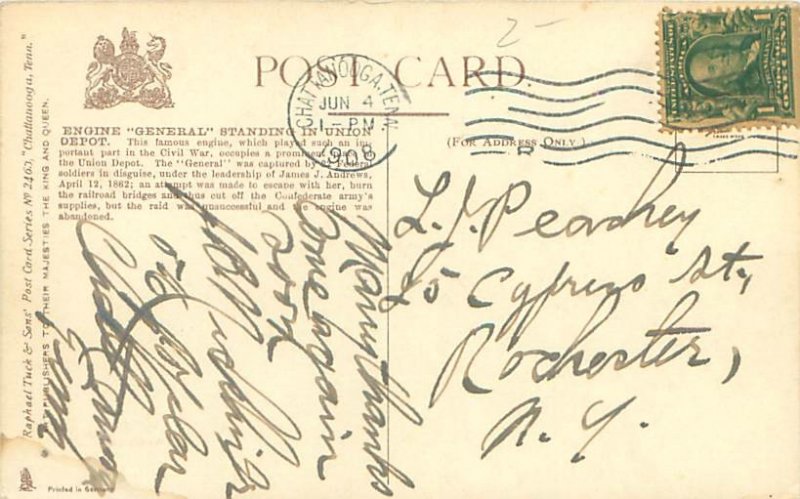 POST CARD.
CHATTANOOGA, TENN.
JUN 4
1-PM
1908
R
2-
1
1
ENGINE "GENERAL" STANDING IN UNION
DEPOT. This famous engine, which played such an im-
portant part in the Civil War, occupies a prominent place in
the Union Depot. The "General" was captured by 21 Federal
soldiers in disguise, under the leadership of James J. Andrews,
April 12, 1862; an attempt was made to escape with her, burn
the railroad bridges and thus cut off the Confederate army's
supplies, but the raid was unsuccessful and the engine was
abandoned.
(FOR ADDRESS ONLY.)
Raphael Tuck & Sons' Post Card Series No 2463, "Chattanooga, Tenn."
ART PUBLISHERS TO THEIR MAJESTIES THE KING AND QUEEN.
Printed in Germany
L. J. Pearhey
25 Cypress St,
Rochester,
N. Y.
Many thanks
Come again
soon